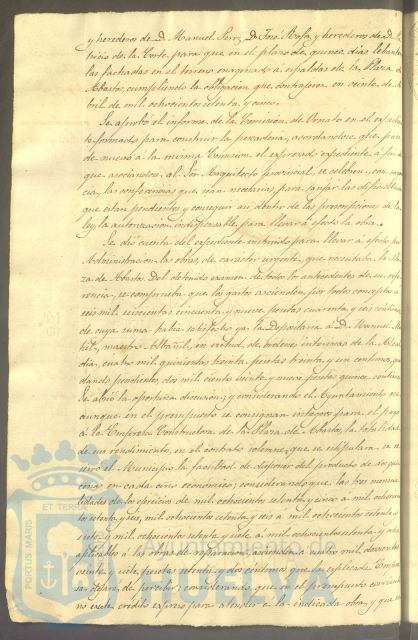 y herederos de D. Manuel Perez, D. José Rofa, y herederos de D.
tricio de la Corte, para que en el plazo de quince dias lebanten
las fachadas en el terreno enagenado á espaldas de la Plaza de
Abastos, cumpliendo la obligacion que contrageron en veinte de A-
bril de mil ochocientos setenta y cinco.
Se aprobó el informe de la Comision de Ornato en el espedien-
te formado para construir la pescaderia, acordandose que pase
de nuevo á la misma Comision el espresado espediente á fin de
que asociandose al Sor. Arquitecto provincial, se celebren, con
cia, las conferencias que sean necesarias para zanjar las dificultades
que estan pendientes y conseguir asi dentro de las prescripciones de la
ley la autorizacion indispensable para llevar á efecto la obra.
Se dió cuenta del espediente instruido para llevar á efecto por
Administracion las obras de caracter urgente, que necesitaba la Pla-
za de Abastos. Del detenido examen de todos los antecedentes de su refe-
rencia, se comprueba que los gastos ascienden por todos conceptos á
seis mil seiscientas cincuenta y nueve pesetas cuarenta y seis centimos
de cuya suma habia satisfecho ya la Depositaria á D. Manuel
maestro Albañil, en virtud de ordenes interinas de la Alcal-
dia, cuatro mil quinientas treinta pesetas treinta y un centimos, que-
dando pendientes dos mil ciento veinte y nueve pesetas quince centimos
Se abrió la oportuna discusion; y considerando el Ayuntamiento que
aunque en el presupuesto se consignan integros para el pago
á la Empresa Constructora de la Plaza de Abastos, la totalidad
de sus rendimientos, en el contrato solemne que se estipulara se re-
servó el Municipio la facultad de disponer del producto de
en cada año economico; considerando que las tres mensua-
lidades de los ejercicios de mil ochocientos setenta y cinco á mil ochocien-
tos setenta y seis, mil ochocientos setenta y seis á mil ochocientos setenta y
siete y mil ochocientos setenta y siete á mil ochocientos setenta y ocho
aplicables á las obras de reparacion, ascienden á cuatro mil doscientas
veinte y siete pesetas setenta y dos centimos que la esplicada Empre-
sa dejara de percibir; considerando que en el presupuesto corriente
no existe credito espreso para atender á la indicada obra, y que
PORTUS MARIS
ET TERRAE
Ayuntamiento de
HUELVA